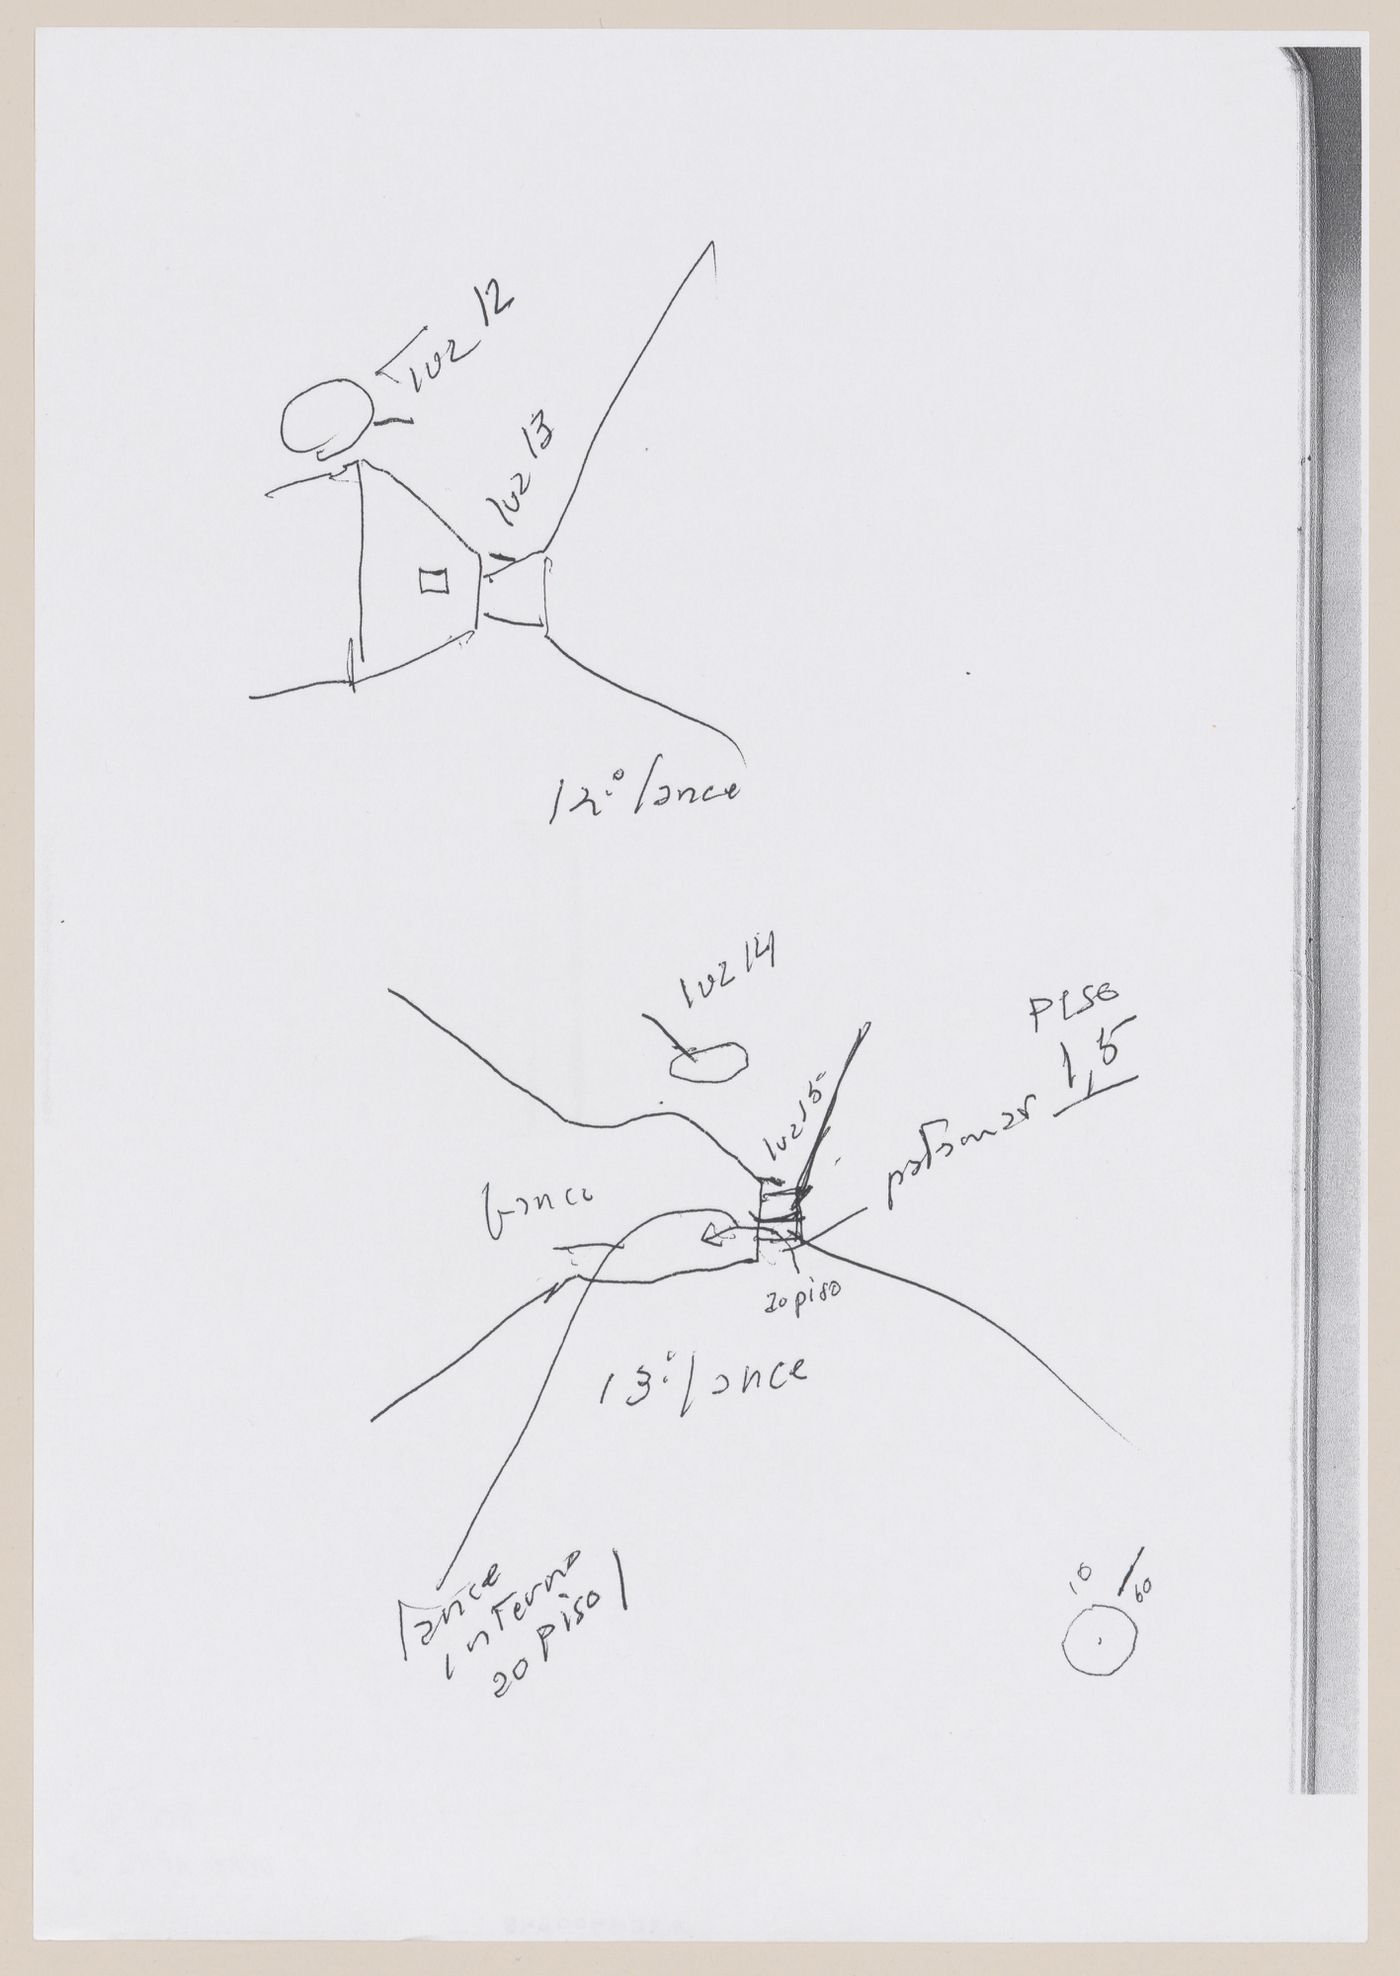 luz 12
luz 13
12.º lance
luz 14
luz 15
PISO
1,5
patamar
banco
20 piso
13.º lance
lance
interno
20 piso
10
60